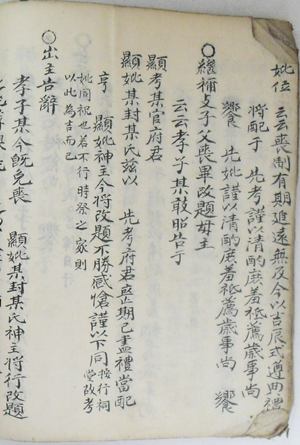 妣位
云云喪制有期追遠無及今以吉辰式遵典禮
將配于 先考謹以清酌庶羞祗薦歲事尚
饗 先妣謹以清酌庶羞祗薦歲事尚 饗
○繼禰支子父喪畢改題母主
云云孝子某敢昭告于
顯考某官府君
顯妣某封某氏茲以 先考府君喪期已盡禮當配
享 顯妣神主今將改題不勝感愴謹以下同
妣同祝也若不行時祭之家則
以此為吉而已
○出主告辭
孝子某今旣免喪 顯妣某封某氏神主將行改題